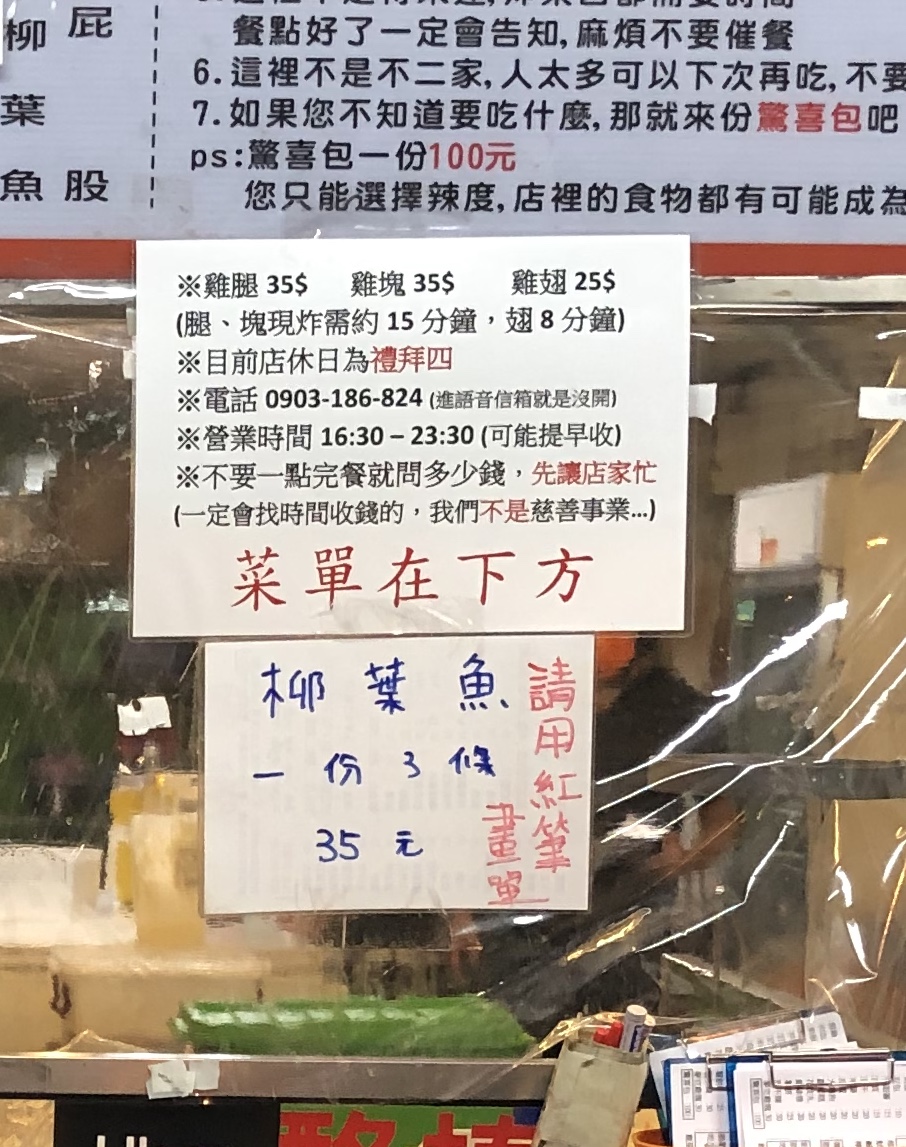 柳 屁
葉
魚 股
餐點好了一定會告知,麻煩不要催餐
6.這裡不是不二家,人太多可以下次再吃,不要
7.如果您不知道要吃什麼,那就來份驚喜包吧
ps:驚喜包一份100元
您只能選擇辣度,店裡的食物都有可能成為
※雞腿 35$ 雞塊 35$ 雞翅 25$
(腿、塊現炸需約 15 分鐘，翅 8 分鐘)
※目前店休日為禮拜四
※電話 0903-186-824 (進語音信箱就是沒開)
※營業時間 16:30 – 23:30 (可能提早收)
※不要一點完餐就問多少錢，先讓店家忙
(一定會找時間收錢的，我們不是慈善事業...)
菜單在下方
柳葉魚
一份3條
35元
請用紅筆
畫單